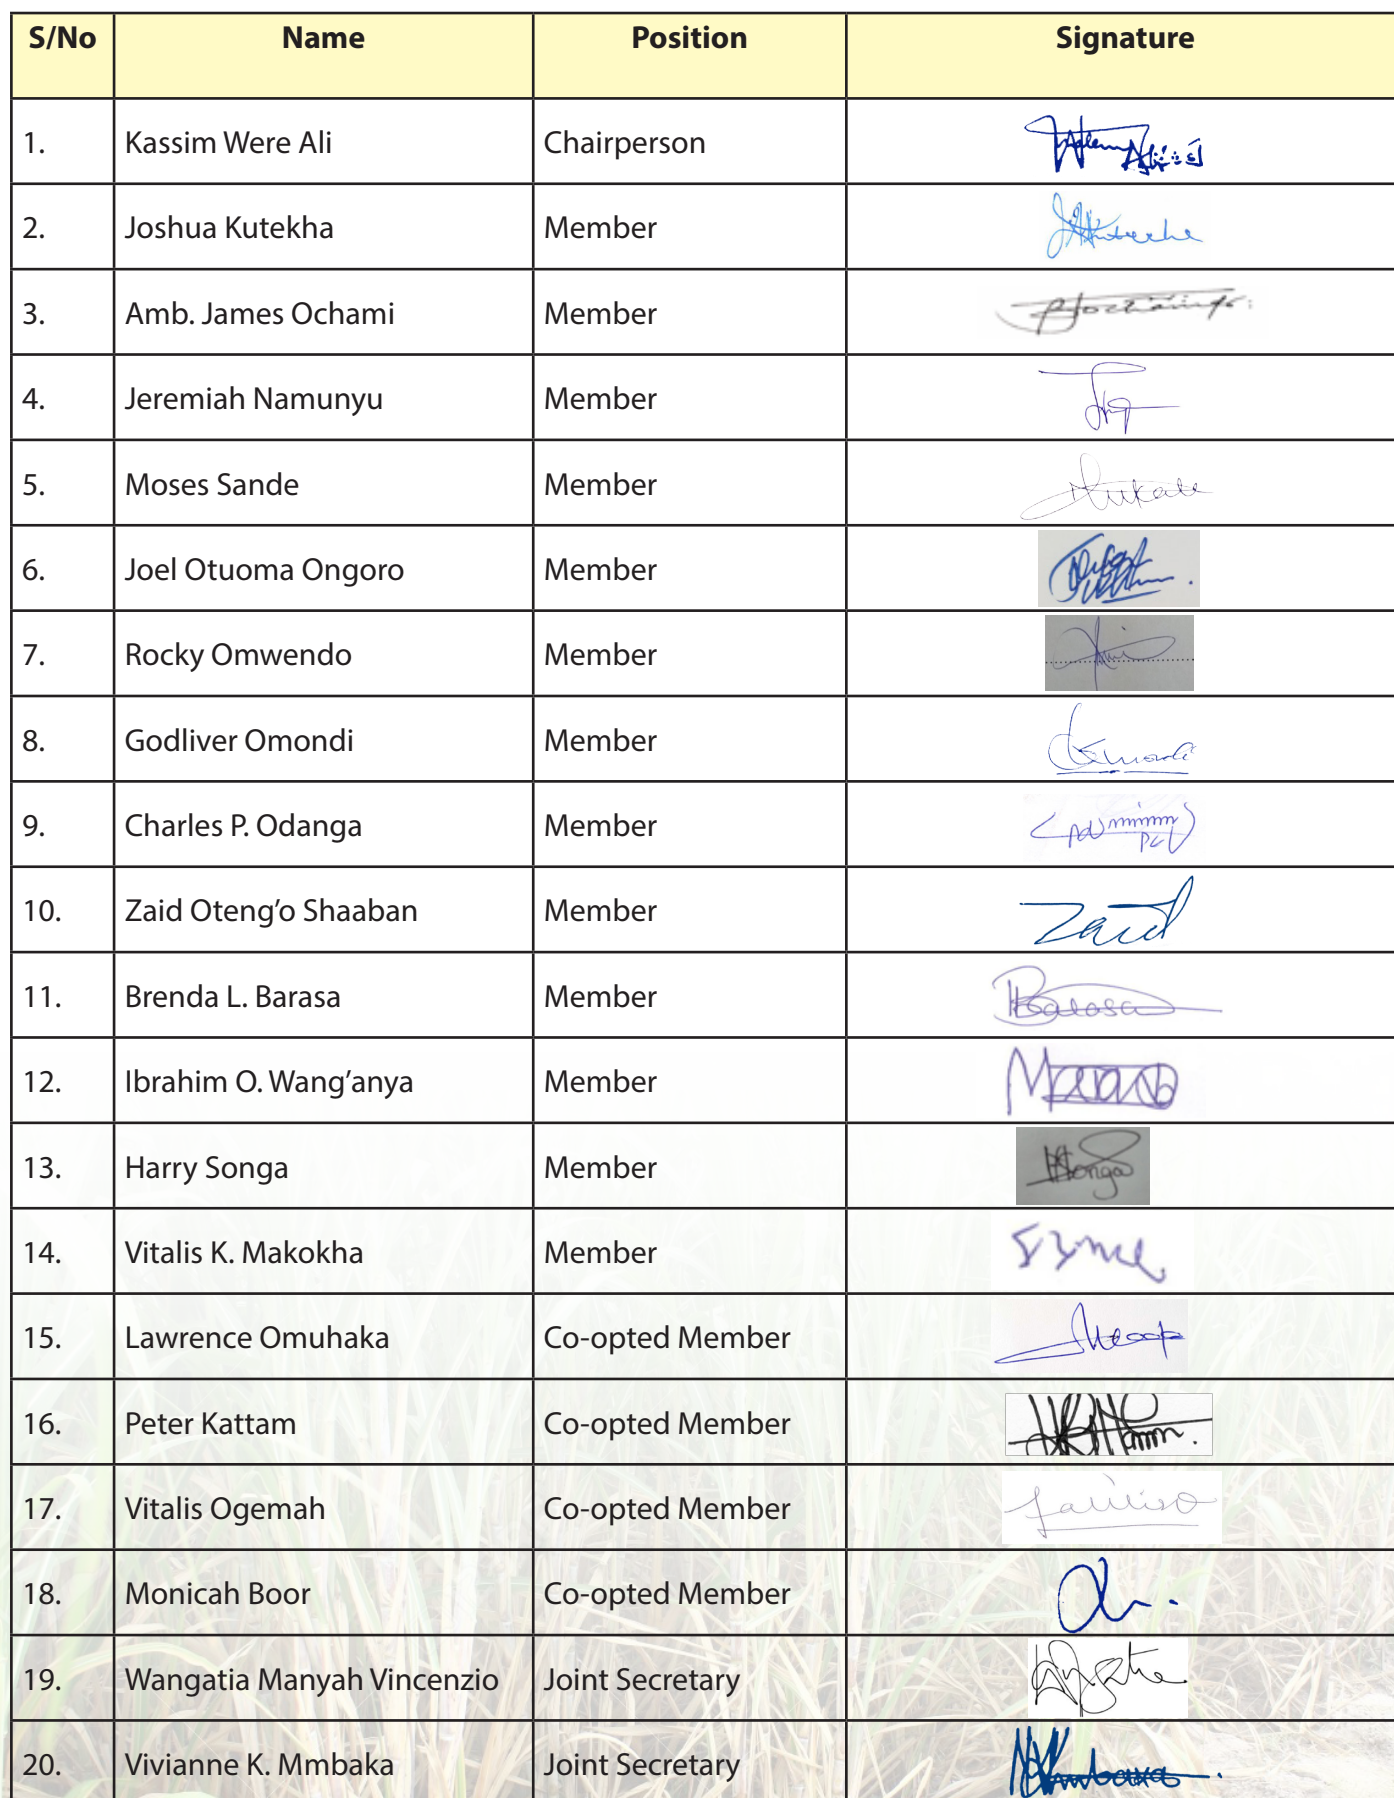 S/No Name Position Signature
1. Kassim Were Ali Chairperson
2. Joshua Kutekha Member
3. Amb. James Ochami Member
4. Jeremiah Namunyu Member
5. Moses Sande Member
6. Joel Otuoma Ongoro Member
7. Rocky Omwendo Member
8. Godliver Omondi Member
9. Charles P. Odanga Member
10. Zaid Oteng’o Shaaban Member Zaid
11. Brenda L. Barasa Member Barasa
12. Ibrahim O. Wang’anya Member
13. Harry Songa Member HSonga
14. Vitalis K. Makokha Member
15. Lawrence Omuhaka Co-opted Member
16. Peter Kattam Co-opted Member
17. Vitalis Ogemah Co-opted Member
18. Monicah Boor Co-opted Member
19. Wangatia Manyah Vincenzio Joint Secretary
20. Vivianne K. Mmbaka Joint Secretary